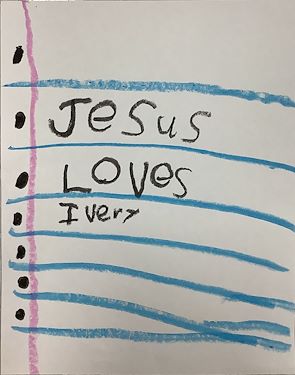 Jesus
Loves
Ivery